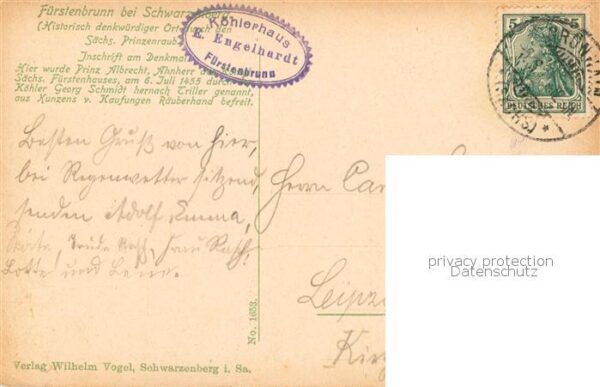 Fürstenbrunn bei Schwarzenberg
(Historisch denkwürdiger Ort durch den
Sächs. Prinzenraub
Inschrift am Denkmal
Hier wurde Prinz Albrecht, Ahnherr des
Sächs. Fürstenhauses, am 8. Juli 1455 durch
Köhler Georg Schmidt hernach Triller genannt,
aus Kunzens v. Kaufungen Räuberhand befreit.
Köhlerhaus
E. Engelhardt
Fürstenbrunn
5
DEUTSCHES REICH
Besten Gruß von hier,
bei Regenwetter sitzend,
senden Adolf, Emma,
Trude
Lotte und Lene.
Herrn
Leipz
privacy protection
Datenschutz
No. 1653.
Verlag Wilhelm Vogel, Schwarzenberg i. Sa.